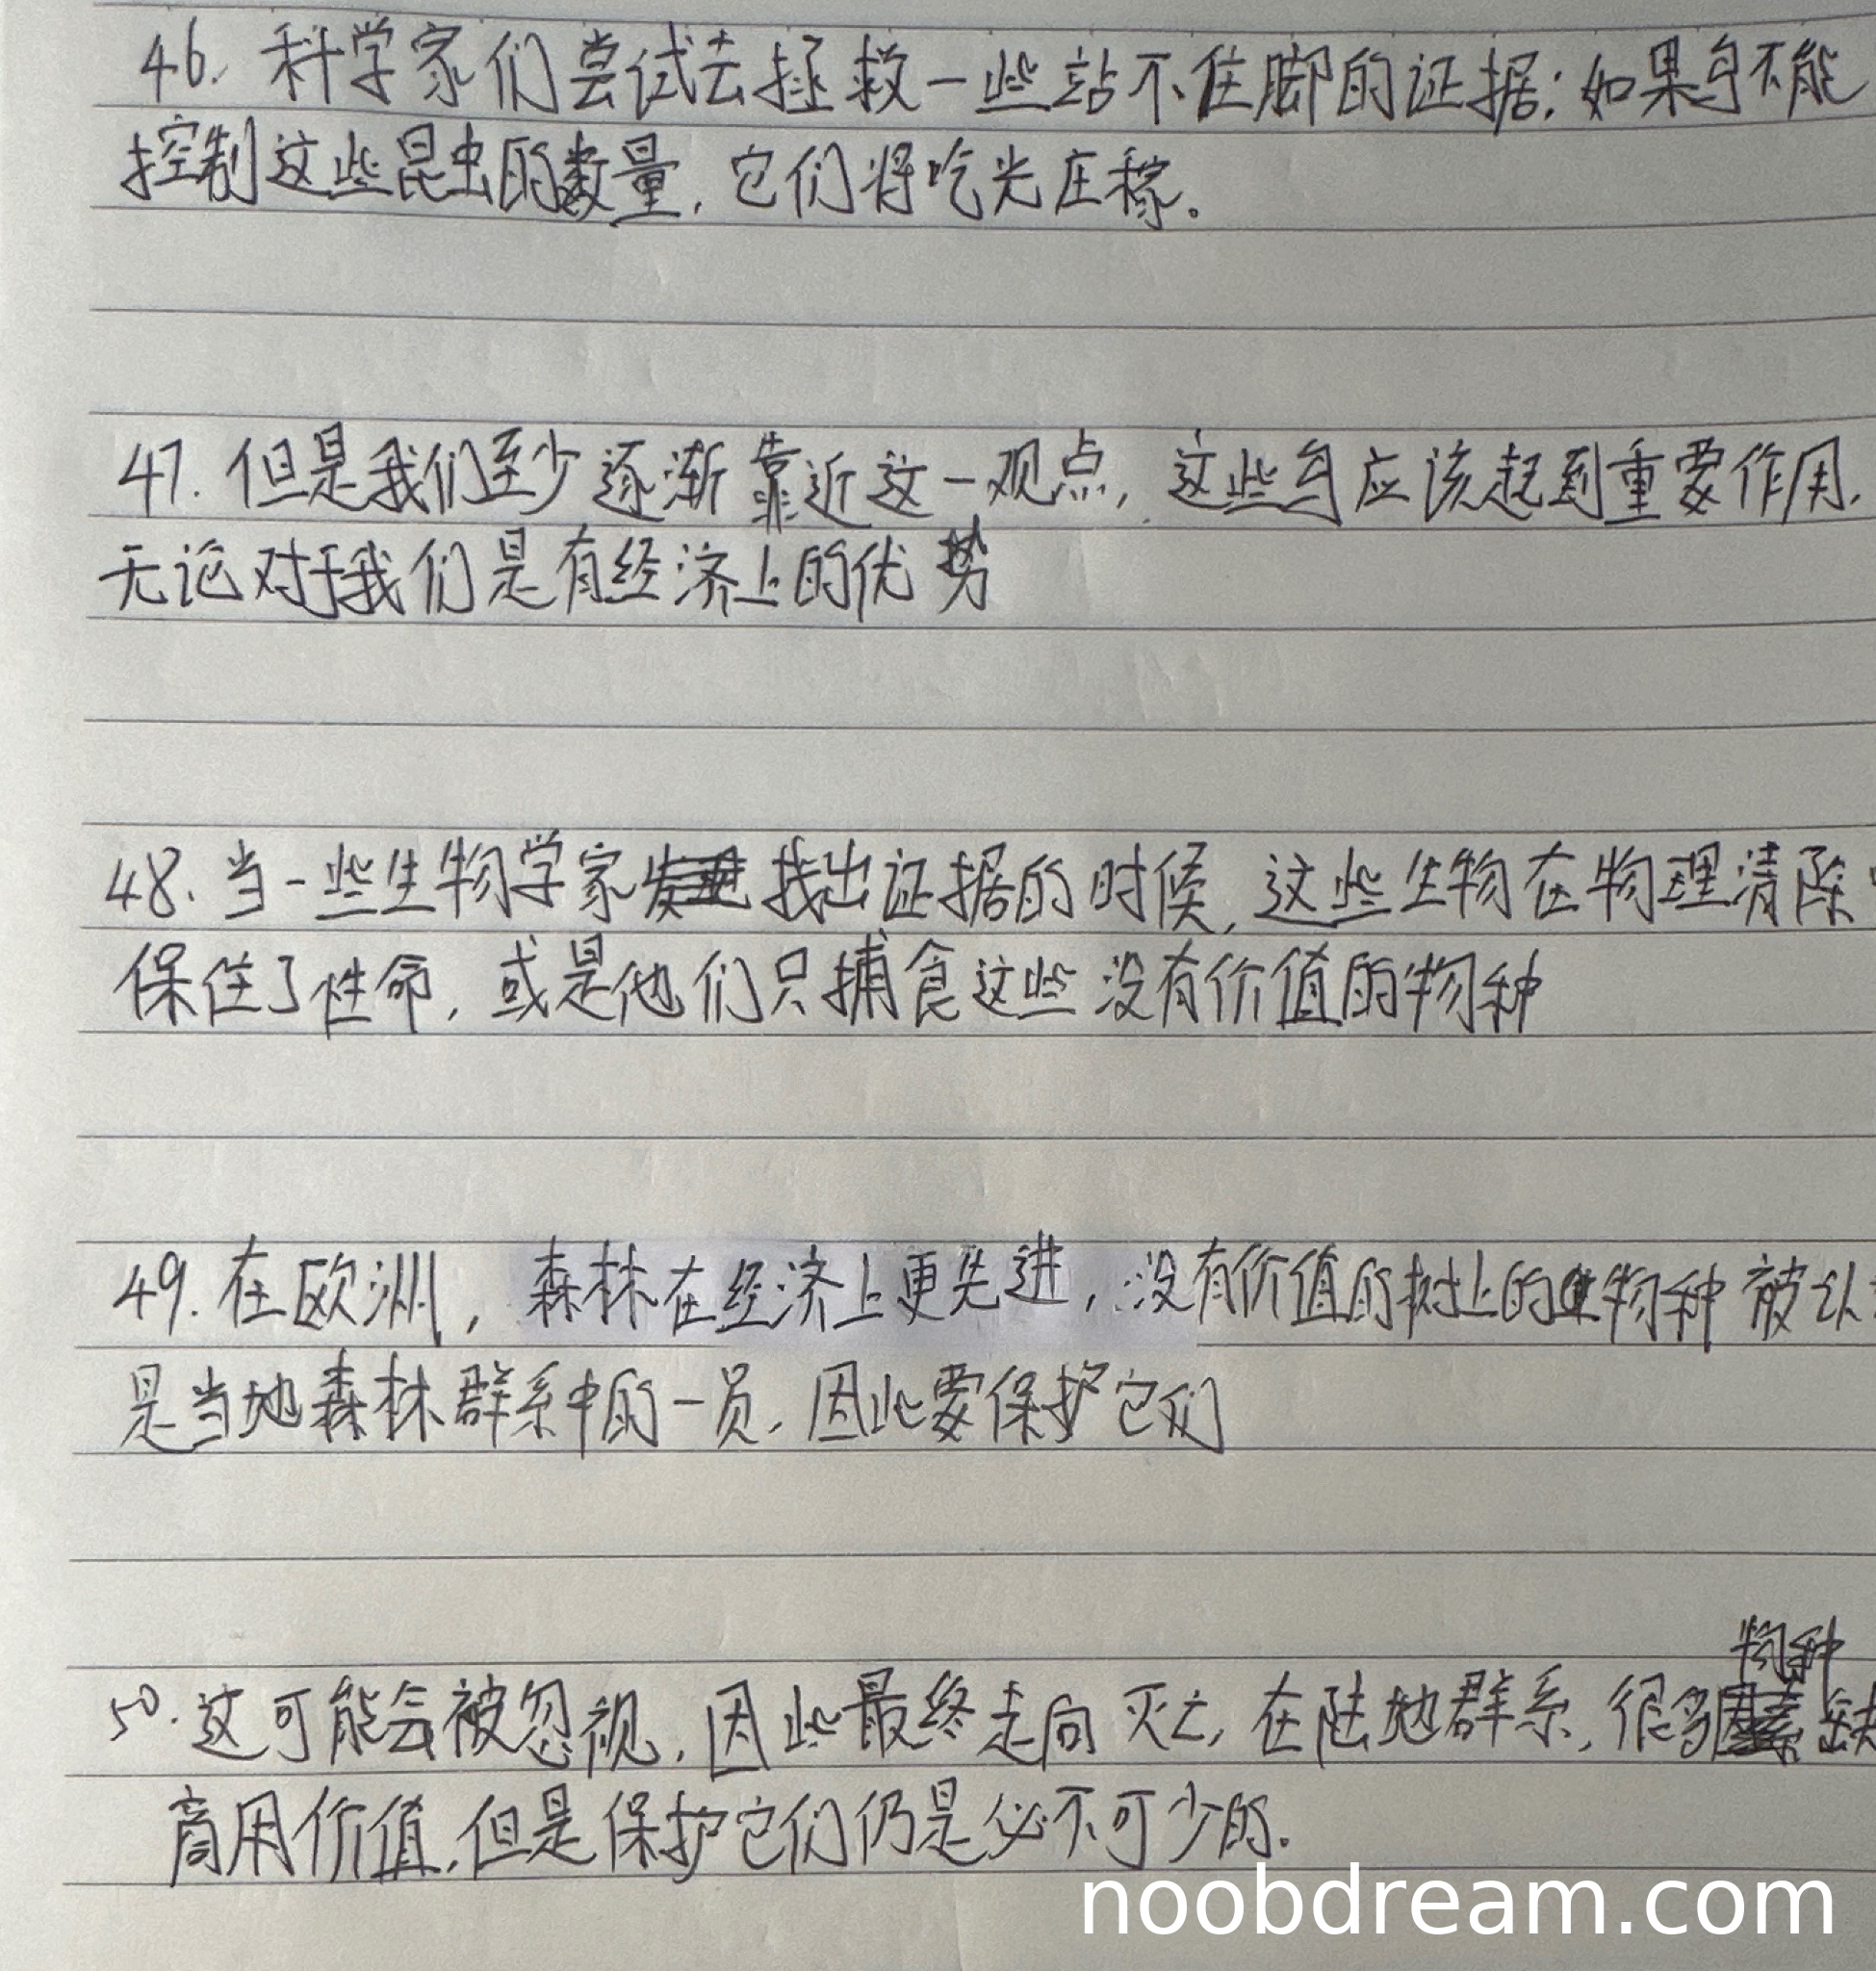 46. 科学家们尝试去拯救一些站不住脚的证据：如果鸟不能
控制这些昆虫的数量，它们将吃光庄稼。
47. 但是我们至少逐渐靠近这一观点，这些鸟应该起到重要作用，
无论对于我们是有经济上的优势
48. 当一些生物学家找出证据的时候，这些生物在物理清除
保住了性命，或是他们只捕食这些没有价值的物种
49. 在欧洲，森林在经济上更先进，没有价值的树上的物种被认
是当地森林群系中的一员，因此要保护它们
物种
50. 这可能会被忽视，因此最终走向灭亡，在陆地群系，很多缺
商用价值，但是保护它们仍是必不可少的。
noobdream.com